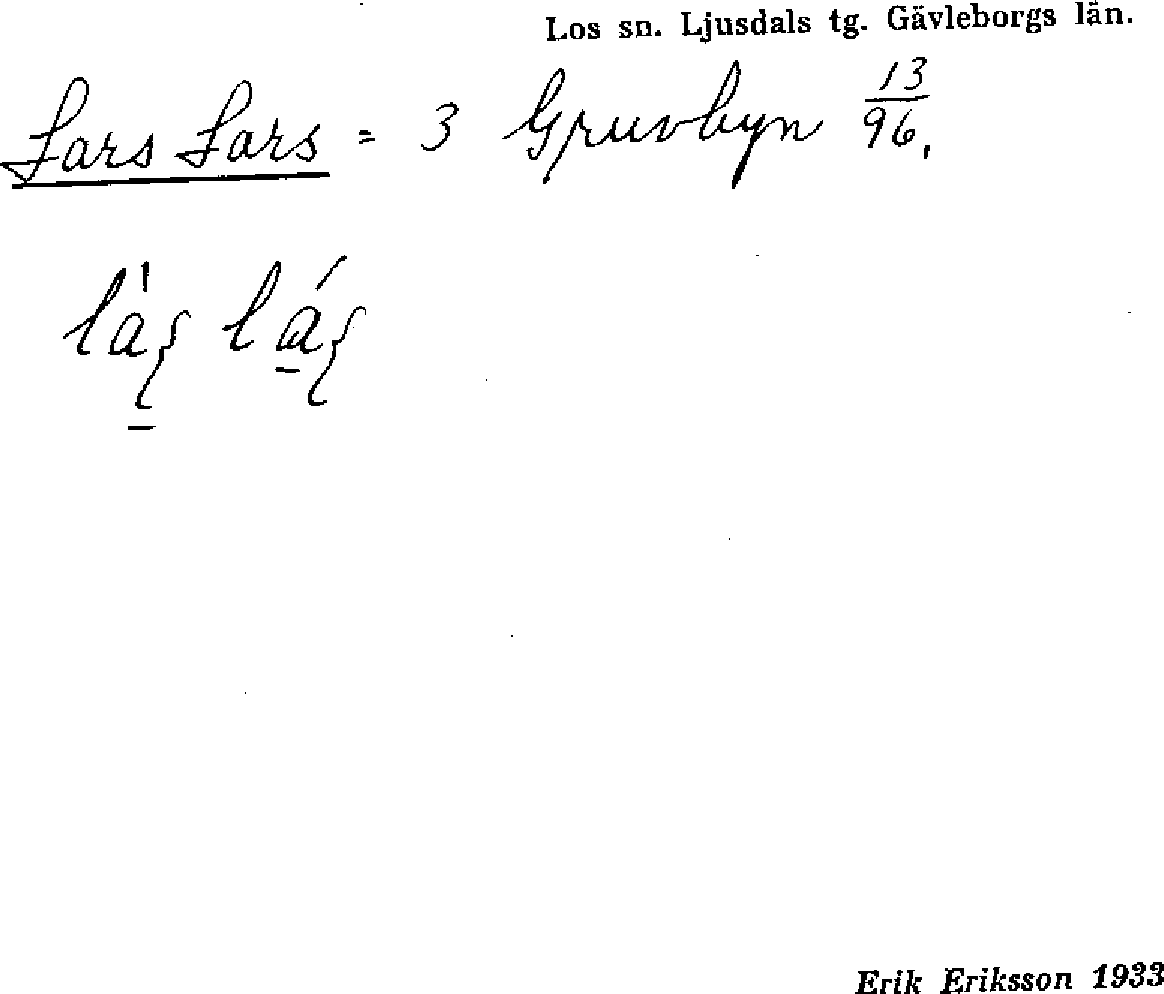 Los sn. Ljusdals tg. Gävleborgs län.
Lars Lars = 3 Gruvbyn 13/96.
Erik Eriksson 1933